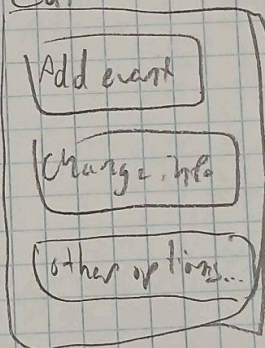 Add event
Change info
other options...